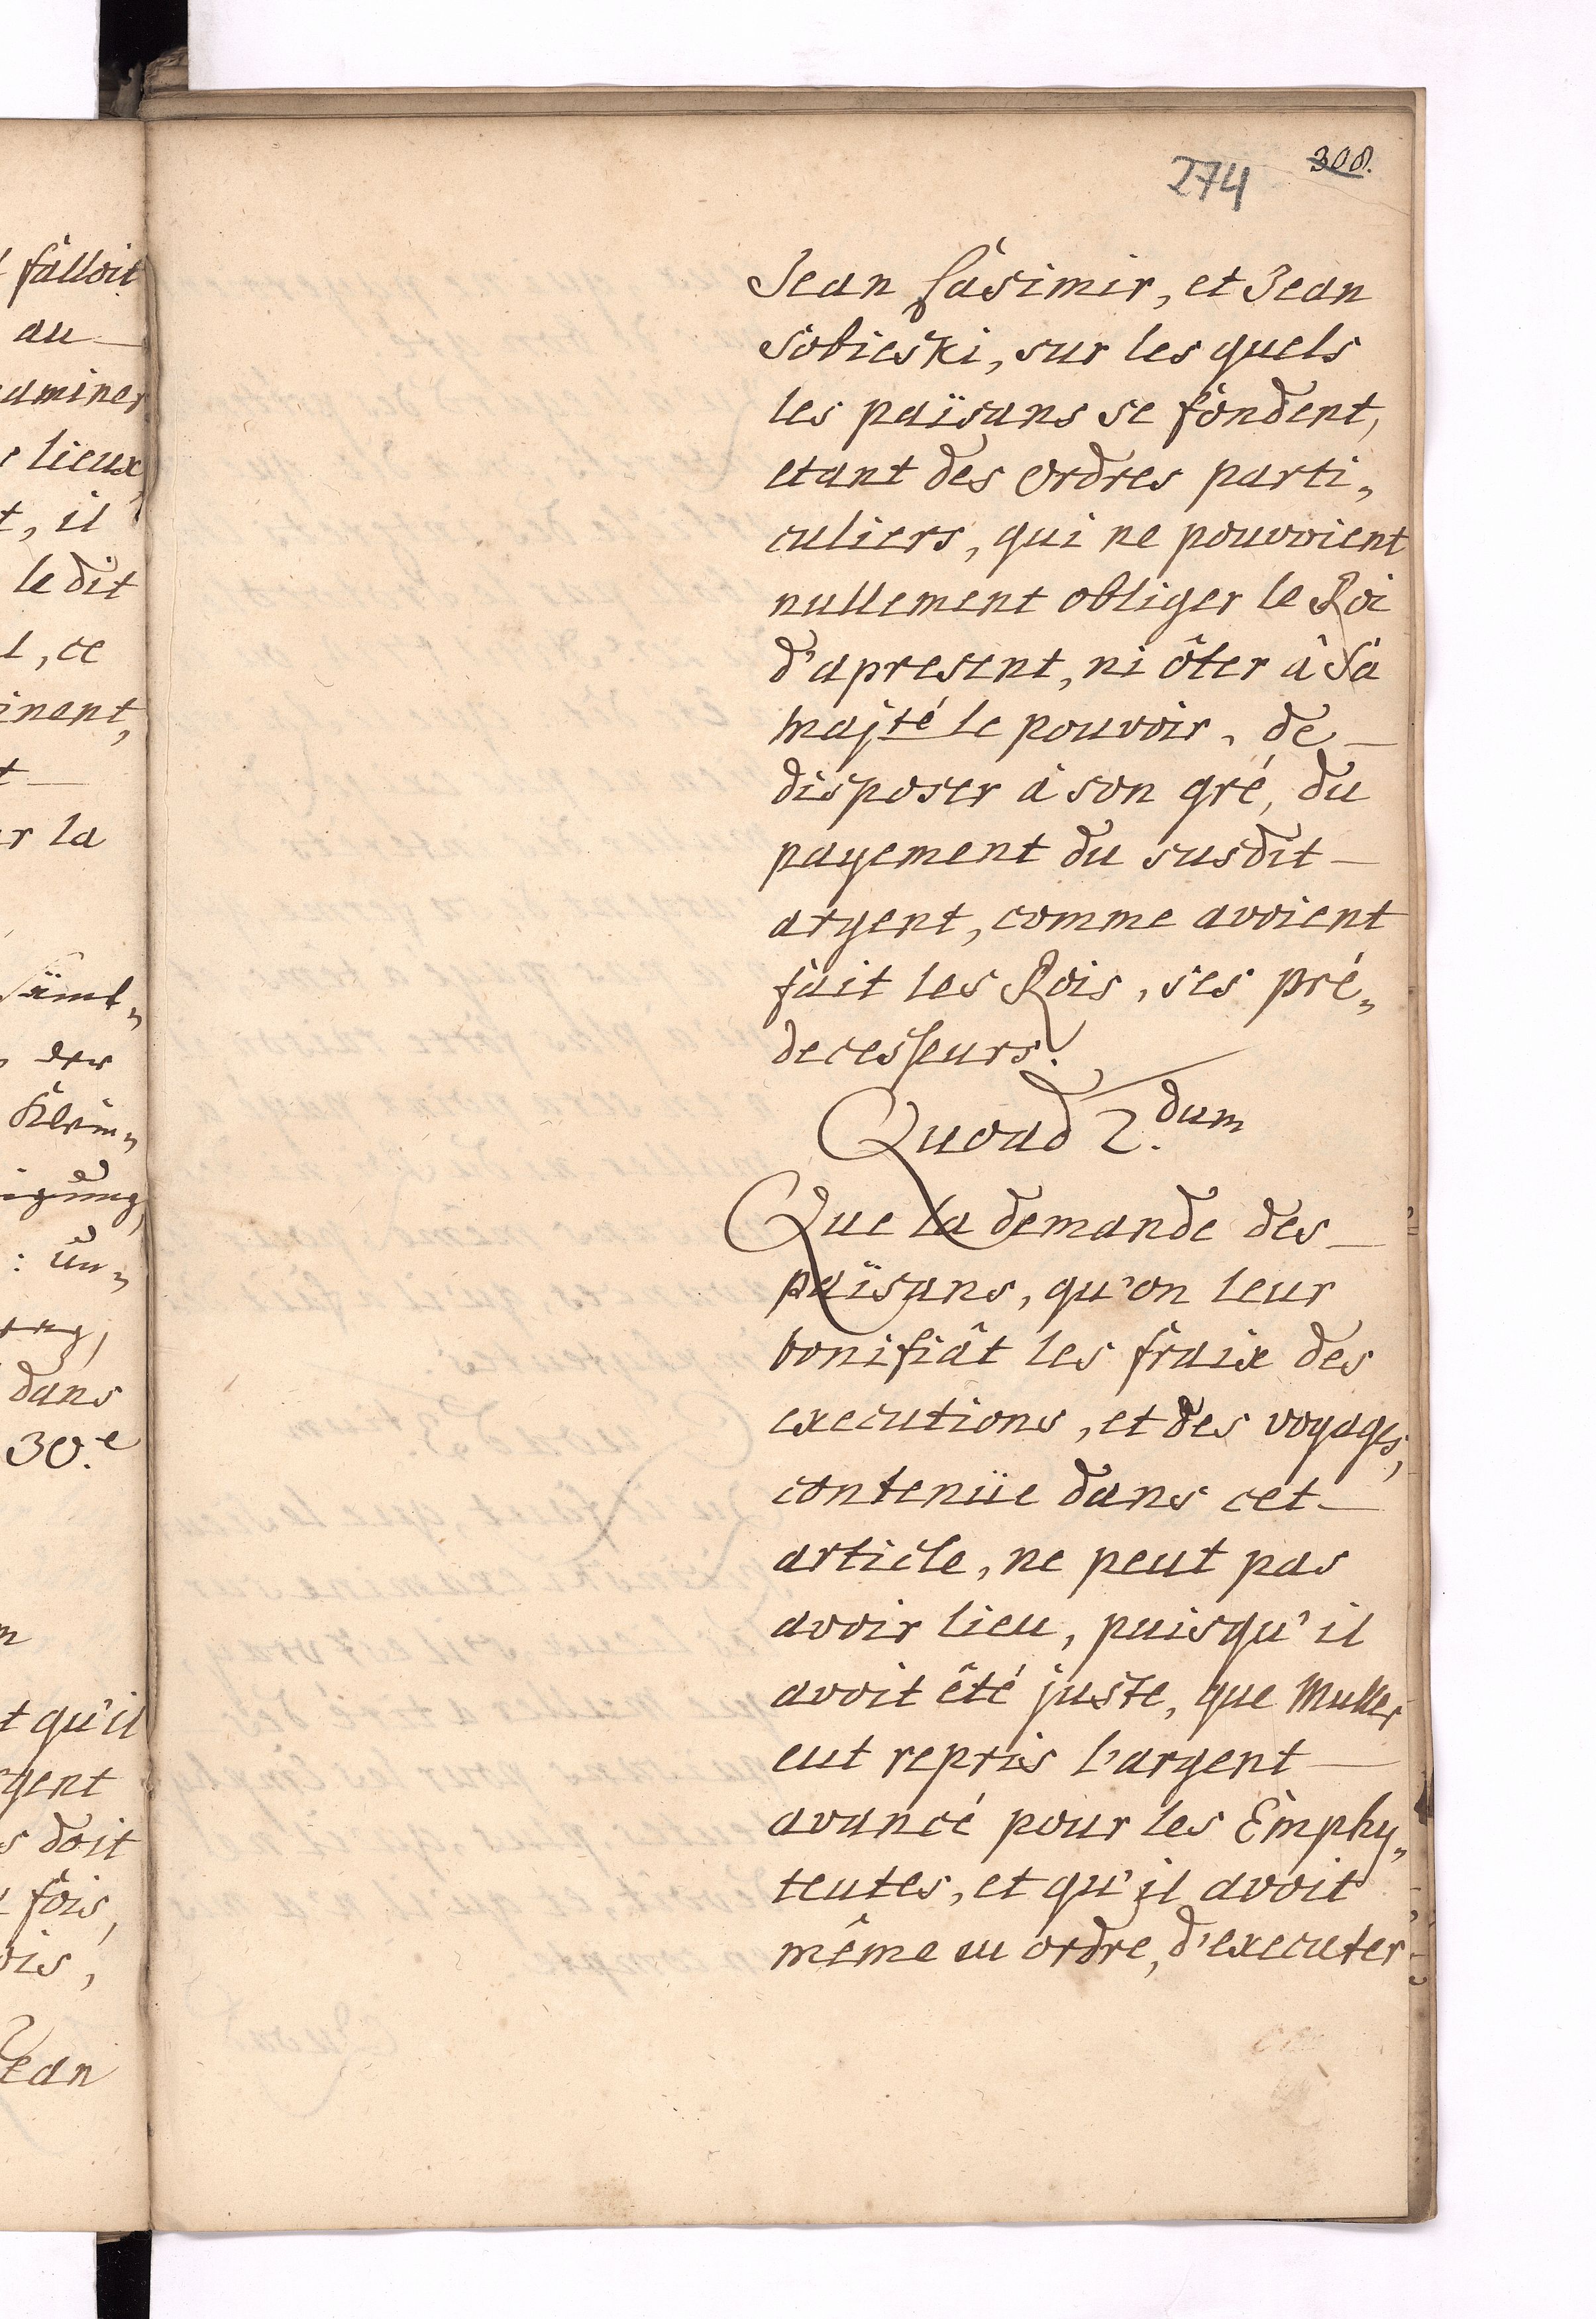 fálloit
au
aminer
lieux,
t, il
le dit
l, ce
inent,
t
r la
der
igung,
: un„
dans
30.e
t qu'il
rgent
s doit
fois,
ois,
Jean
274 308.
Jean Cásimir, et Jean
Sobieski, sur les quels
les païsans se fondent,
etant des ordres parti„
culiers, qui ne pouvoient
nullement obliger le Roi
d'apresent, ni ôter â Sa
majté le pouvoir, de
disposer á son gré, du
payement du susdit
argent, comme avoient
fait les Rois, ses pré„
decesseurs.
Quoad 2.dum
Que la demande des
païsans, qu'on leur
bonifiât les fraix des
executions, et des voyages,
contenüe dans cet
article, ne peut pas
avoir lieu, puisqu'il
avoit êté juste, que Muller
eut repris l'argent
avancé pour les Emphy„
teutes, et qu'il avoit
même eu ordre, d'executer